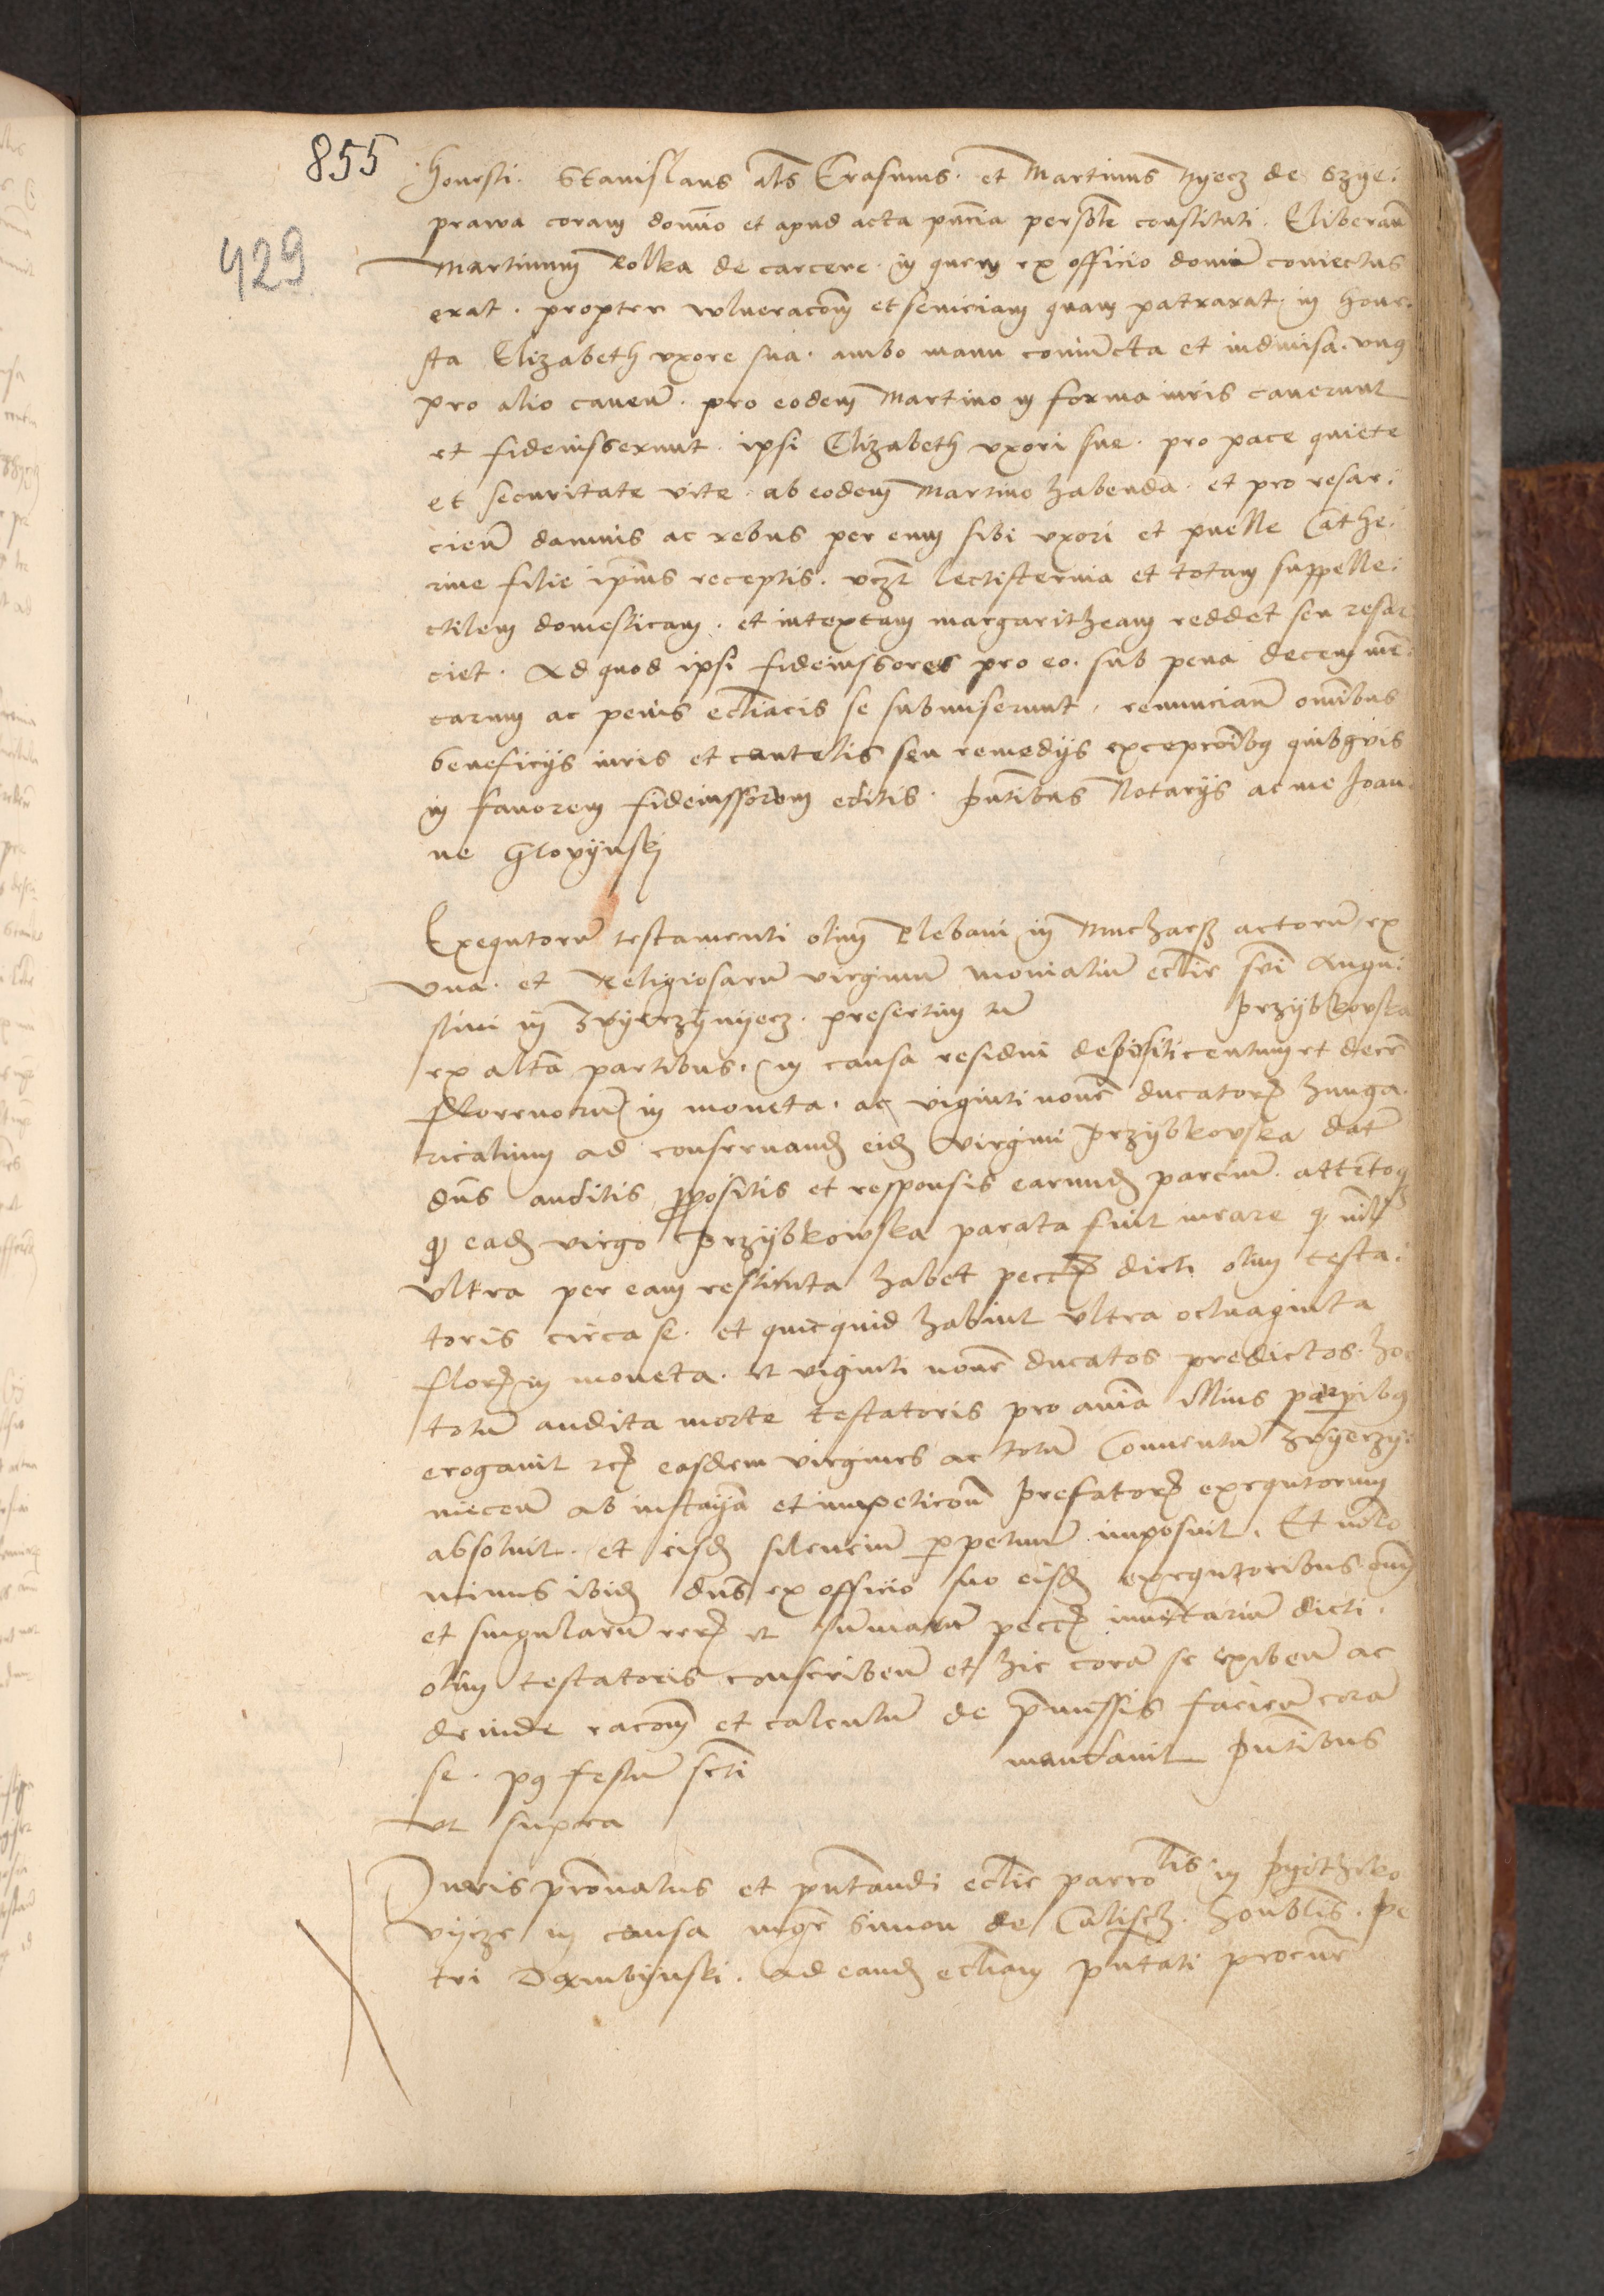 855
429
Honesti. Stanislaus als Erasmus. et Martinus Nyecz de Szye:
prawa coram domino et apud acta pncia persolr constituti. Eliberan
Martinum Kolka de carcere. in quem ex officio domini coniectus
erat. propter vulneracom et seuiciam quam patrarat. in hone:
sta Elizabeth vxore sua. ambo manu coniuncta et indiuisa. vnus
pro alio cauen. pro eodem Martino in forma iuris cauerunt
et fideiusserunt. ipsi Elizabeth vxori sue. pro pace quiete
et securitate vite. ab eodem Martino habenda. et pro resar:
cien damnis ac rebus per eum sibi vxori et puelle Cathe:
rine filie ipsius receptis. vczt lectisternia et totam suppelle:
ctilem domesticam. et intextam margaritheam reddet seu resar
ciet. Ad quod ipsi fideiussores pro eo. sub pena decem mr:
carum ac penis ecclacis se submiserunt. renuncian omnibus
beneficijs iuris et cautelis seu remedijs excepcoibus quibusuis
in fauorem fideiussorum editis. pntibus Notarijs ac me Joan
ne Grovijnskj
Exequtorum testamenti olim Plebani in Mucharsz actorum ex
vna. et Religiosarum virginum monialium ecclie sci Augu:
stini in Zvyerzynyecz. presertim tn Przijbkovska
ex altra partibus. in causa residui depositi centum et decem
florenorum in moneta. ac viginti nouem ducator hunga
ricalium ad conseruand eid virgini Przybkovska dat
dns auditis propositis et responsis earund parcium. attentoq
q eadem virgo Przijbkowska parata fuit iurare q nil
vltra per eam restituta habet pecc dicti olim testa:
toris circa se. et quicquid habuit vltra octuaginta
flor in moneta. et viginti nouem ducatos predictos. hoc
totum audita morte testatoris pro anima illius paupibus
erogauit easdem virgines ac totum Conuentum Zvyerzy
niecen ab instancia et impeticone prefator exequtorum
absoluit. et eisd silencium perpetuum imposuit. Et nilo
minus ibid dns ex officio suo eisd exequtoribus omnium
et singularum rer et summarum pecc inuentarium dicti.
olim testatoris conscriben et hic coram se exiben ac
deinde racom et calculum de premissis facien coram
se. post festum scti mandauit pntibus
ut supra
Juris pronatus et pntandi ecclie parrolis in Pyothrko
vijcze in causa mgri Simon de Calisch. honblis. Pe
tri Dambijnski. ad eand eccliam pntati procur